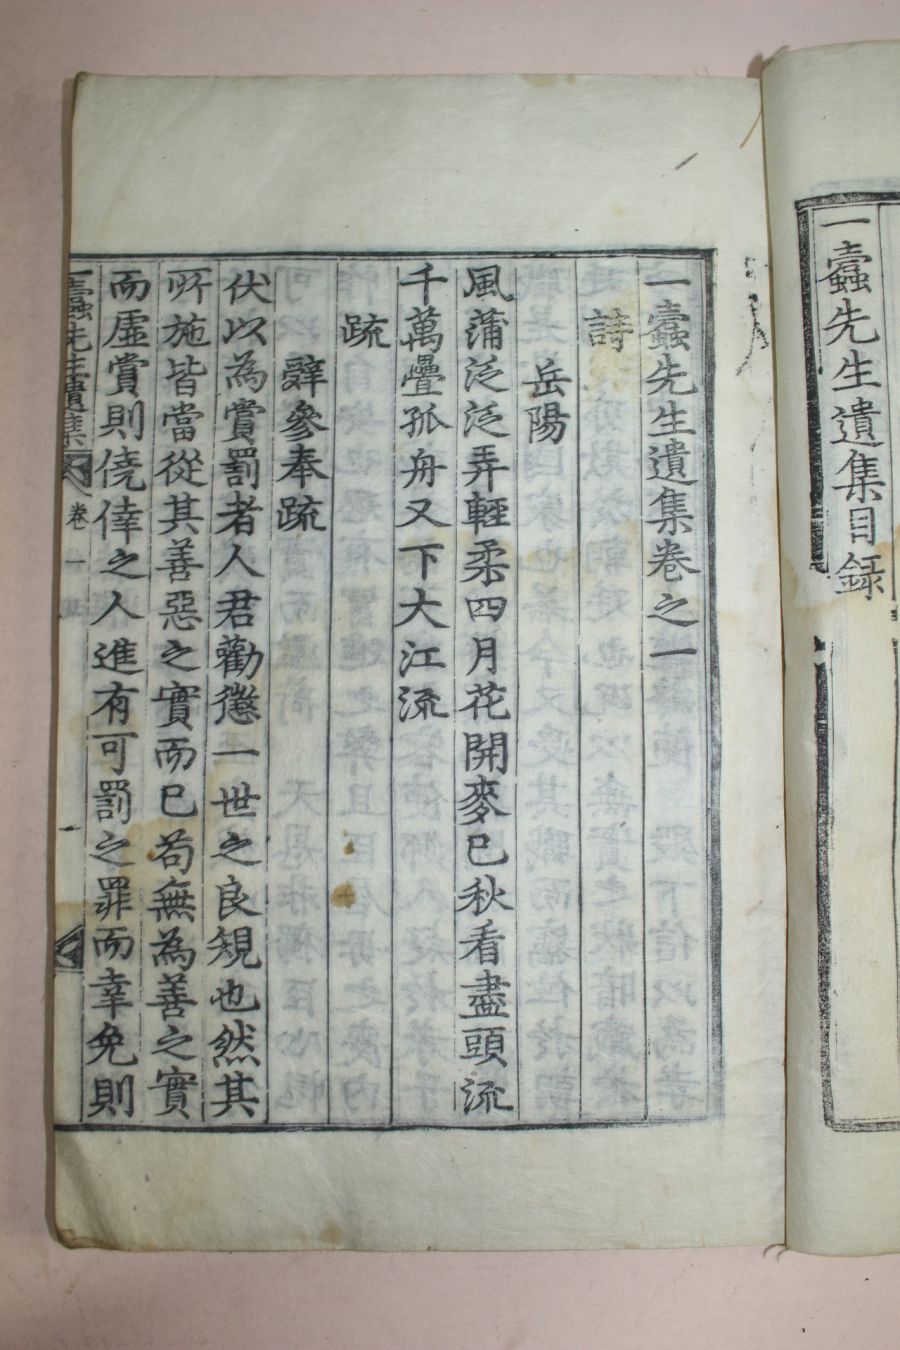 一蠹先生遺集目録
一蠹先生遺集卷之一
詩
岳陽
風蒲泛泛弄輕柔四月花開麥已秋看盡頭流
千萬疊孤舟又下大江流
疏
辭參奉疏
伏以為賞罰者人君勸懲一世之良規也然其
所施皆當從其善惡之實而已苟無為善之實
而虛賞則僥倖之人進有可罰之罪而幸免則
一蠹先生遺集 卷一